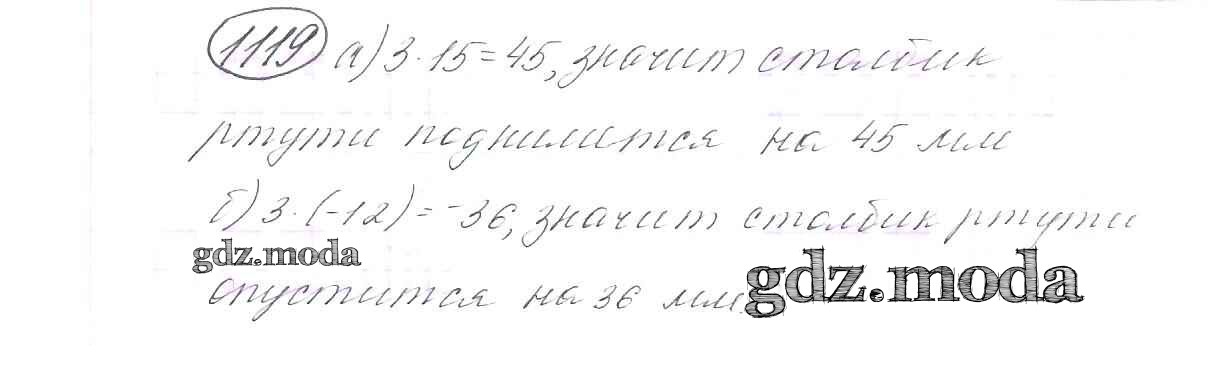 1119 а) 3·15=45, значит столбик
ртути поднимется на 45 мм
б) 3·(-12)=-36, значит столбик ртути
gdz.moda
опустится на 36 мм.
gdz.moda